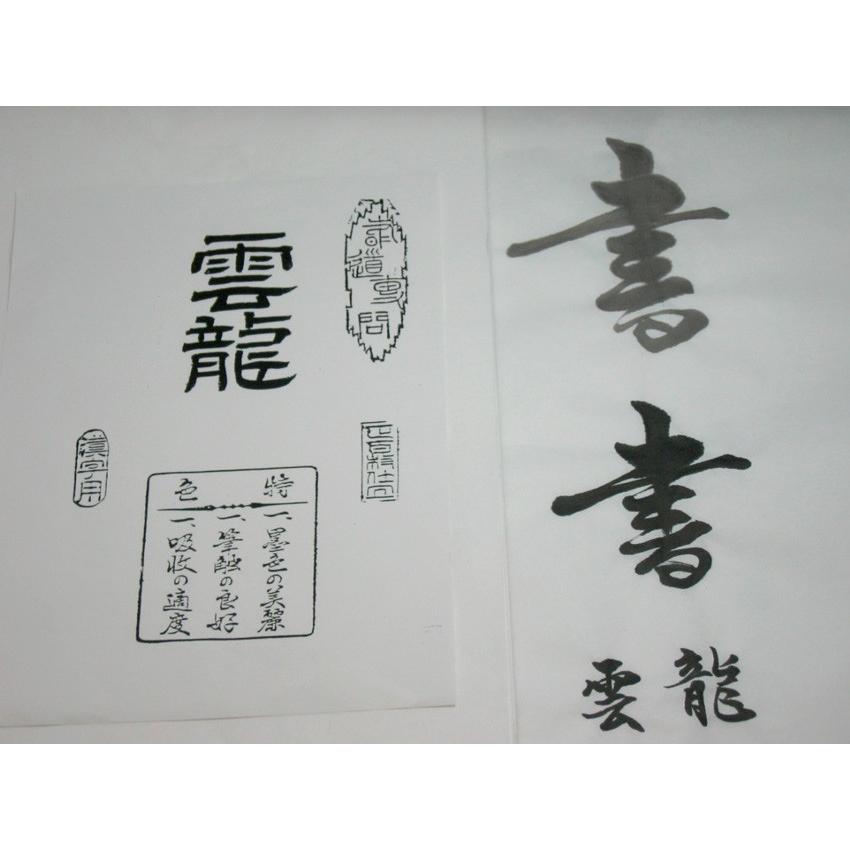 雲龍
漢字用
特色
一、墨色の美麗
一、筆触の良好
一、吸收の適度
書
書
雲龍